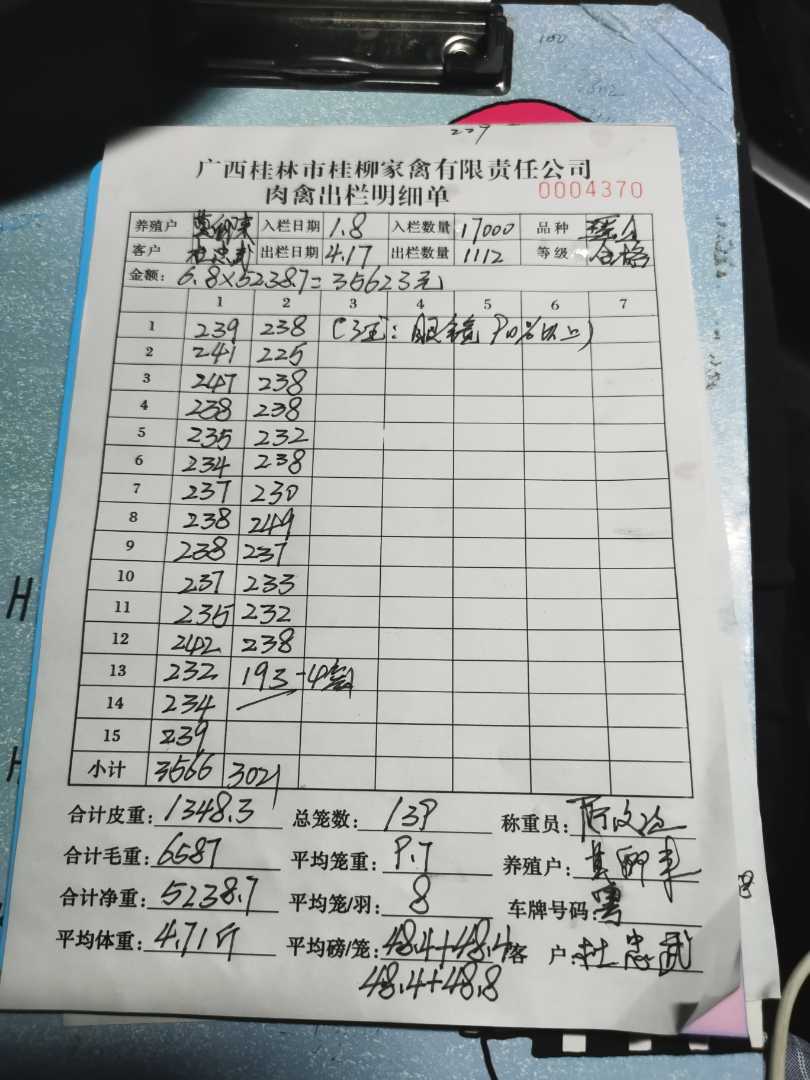 广西桂林市桂柳家禽有限责任公司
肉禽出栏明细单 0004370
养殖户 入栏日期 1.8 入栏数量 17000 品种
客户 杜忠武 出栏日期 4.17 出栏数量 1112 等级 合格
金额: 6.8×5238.7=35623元
1 2 3 4 5 6 7
1 239 238
2 241 225
3 247 238
4 238 238
5 235 232
6 234 238
7 237 230
8 238 249
9 238 237
10 237 233
11 235 232
12 242 238
13 232 193-4
14 234
15 239
小计 3566 3021
合计皮重: 1348.3 总笼数: 139 称重员:
合计毛重: 6587 平均笼重: 9.7 养殖户:
合计净重: 5238.7 平均笼/羽: 8 车牌号码:
平均体重: 4.71斤 平均磅/笼: 48.4+48.4 客 户: 杜忠武
48.4+48.8